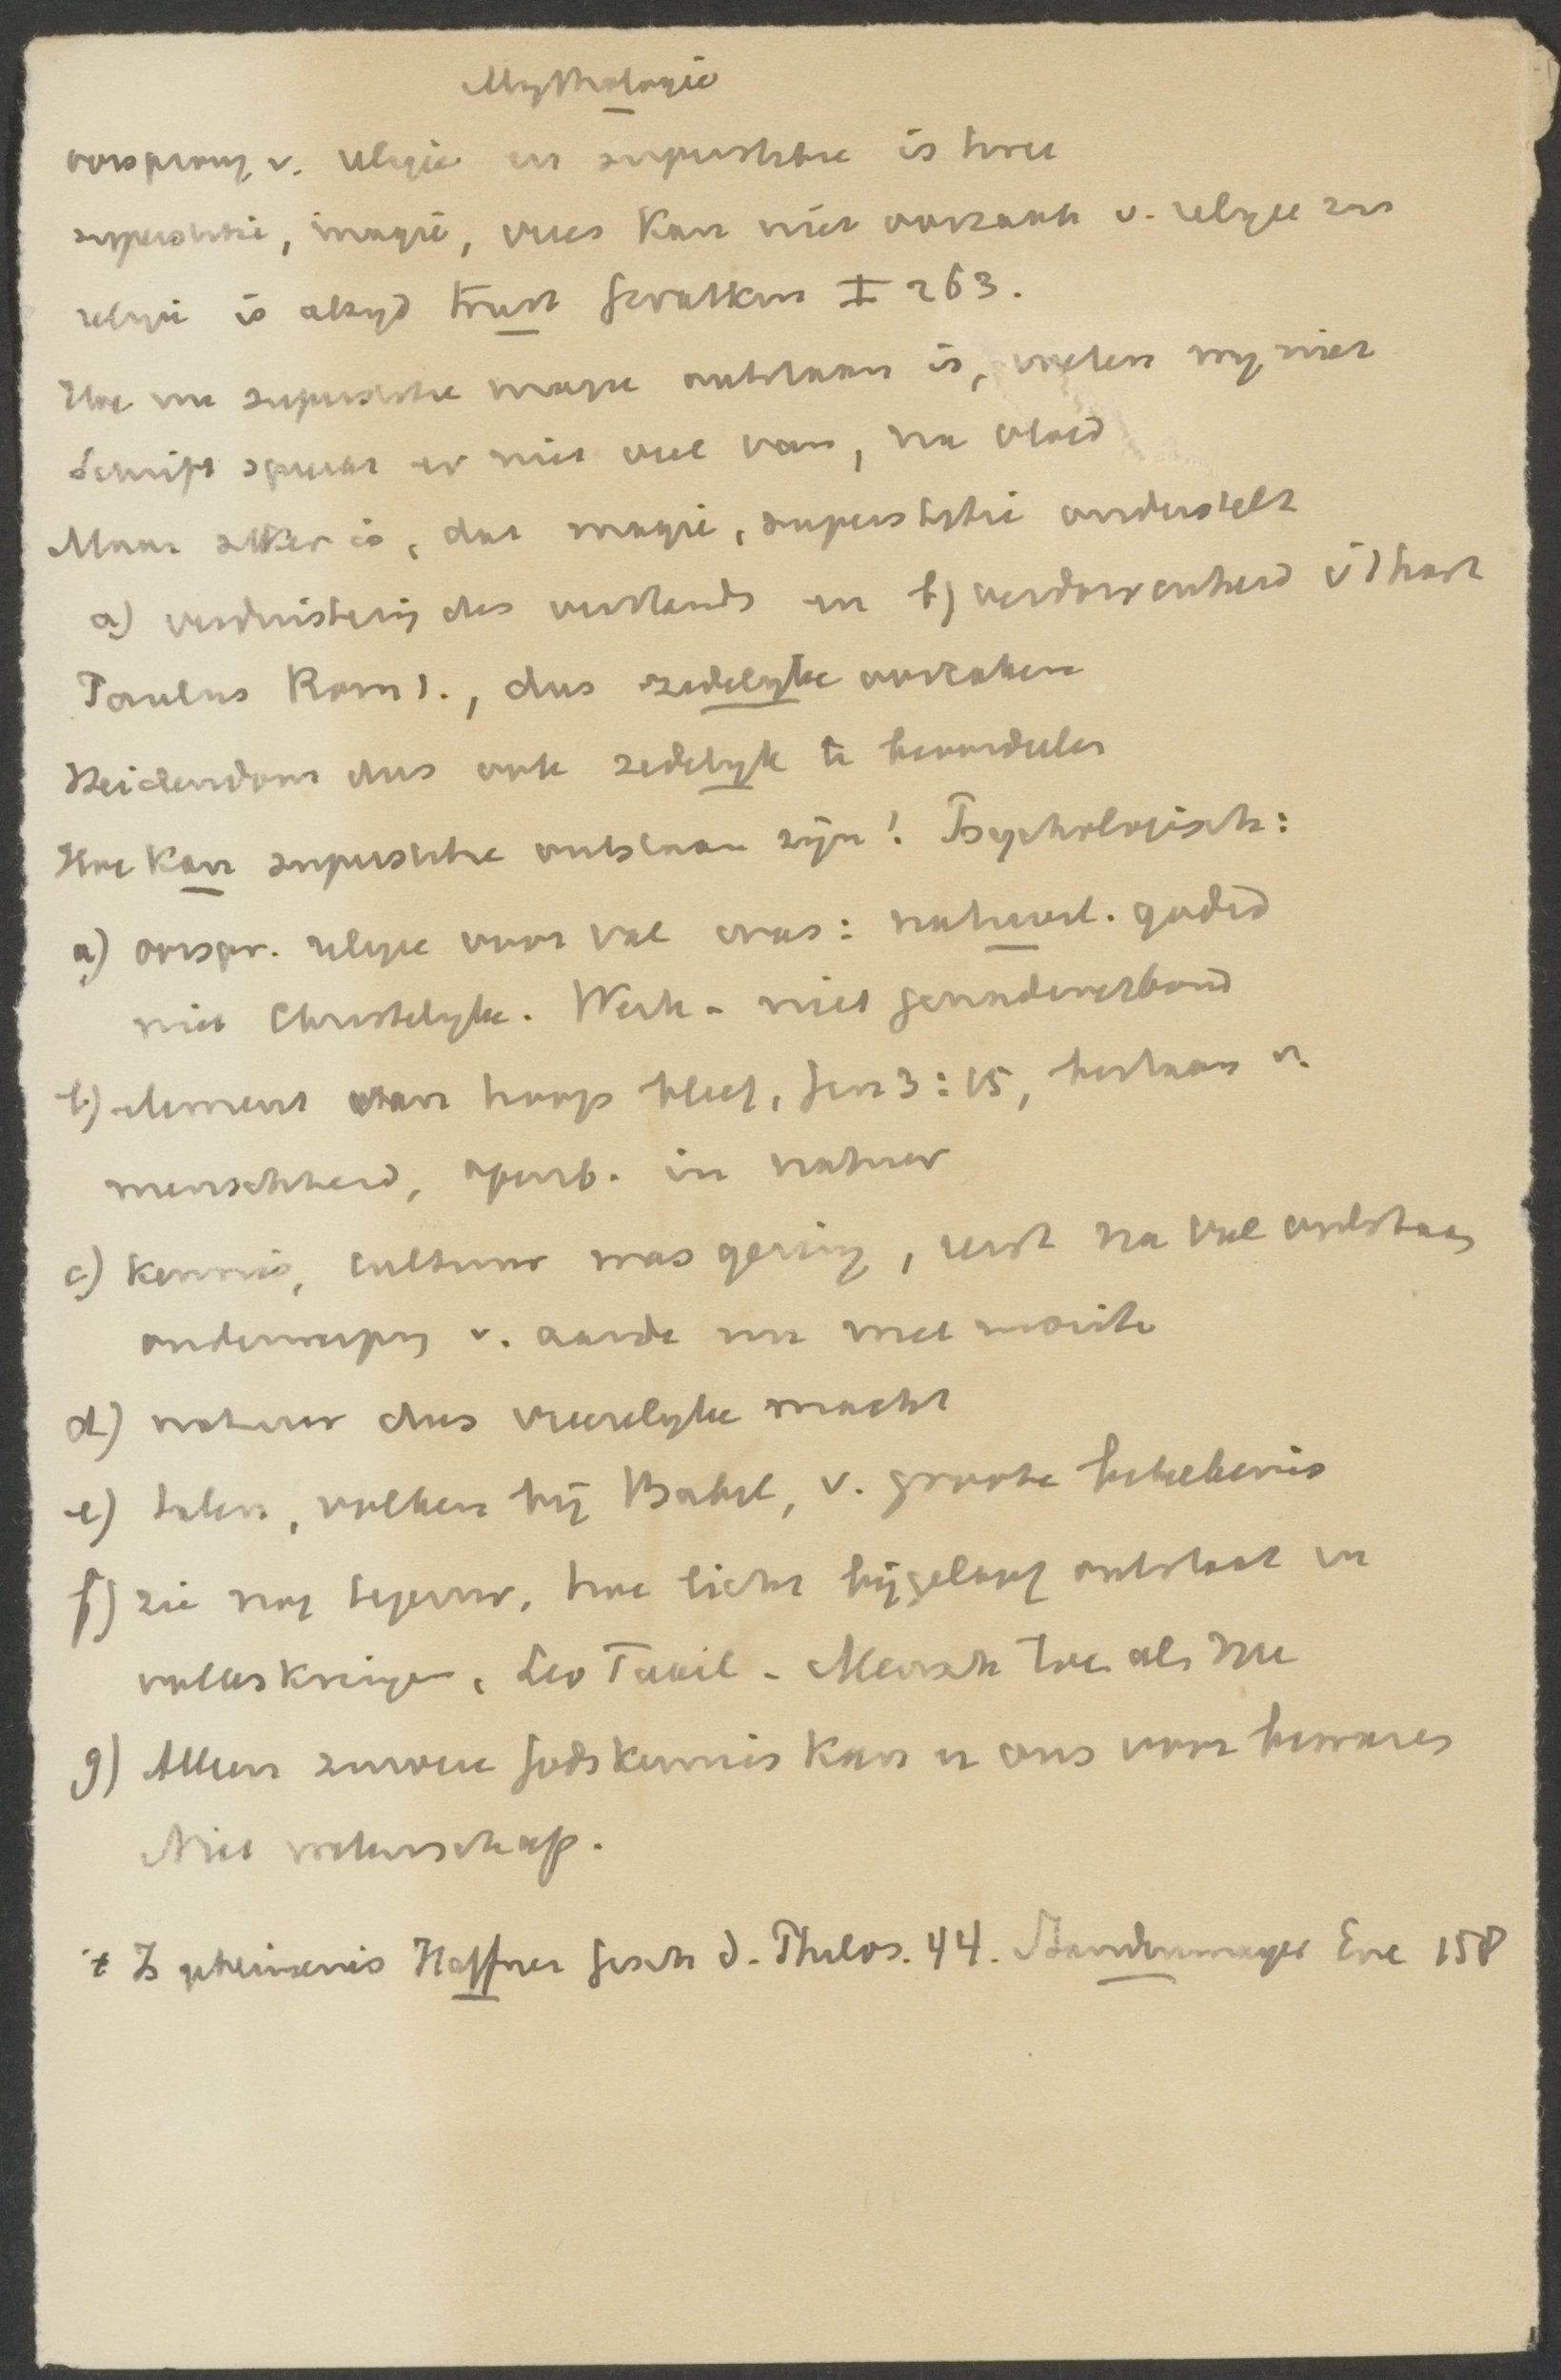 Mythologie
oorsprong v. religie en superstitie is twee
superstitie, magie, vrees kan niet oorzaak v. religie zijn
religie is altyd trust Gevalken I 263.
Hoe nu superstitie magie ontstaan is, weten wy niet
Schrift spreekt er niet veel van, na vloed
Maar zeker is, dat magie, superstitie onderstelt
a) verduistering des verstands en b) verdorvenheid v/h hart
Paulus Rom 1., dus zedelyke oorzaken
Heidendom dus ook zedelyk te beoordeelen
Hoe kan superstitie ontstaan zijn! Psychologisch:
a) oorspr. religie voor val was: natuurl. godsd
niet Christelyke. Werk- niet genadeverbond
b) element van hoop bleef, Gen 3:15, bestaan v.
menschheid, openb. in natuur
c) kennis, cultuur was gering, eerst na val ontstaan
onderwerping v. aarde nu met moeite
d) natuur dus vreeselyke macht
e) talen, volken bij Babel, v. groote beteekenis
f) zie nog tegenw, hoe licht bijgeloof ontstaat in
volkskringen, Leo Taxil - Mensch toe als nu
g) Alleen zuivere Godskennis kan er ons voor bewaren
Niet wetenschap.
't Is geheimenis Haffner Gesch d. Philos. 44. Ene 158